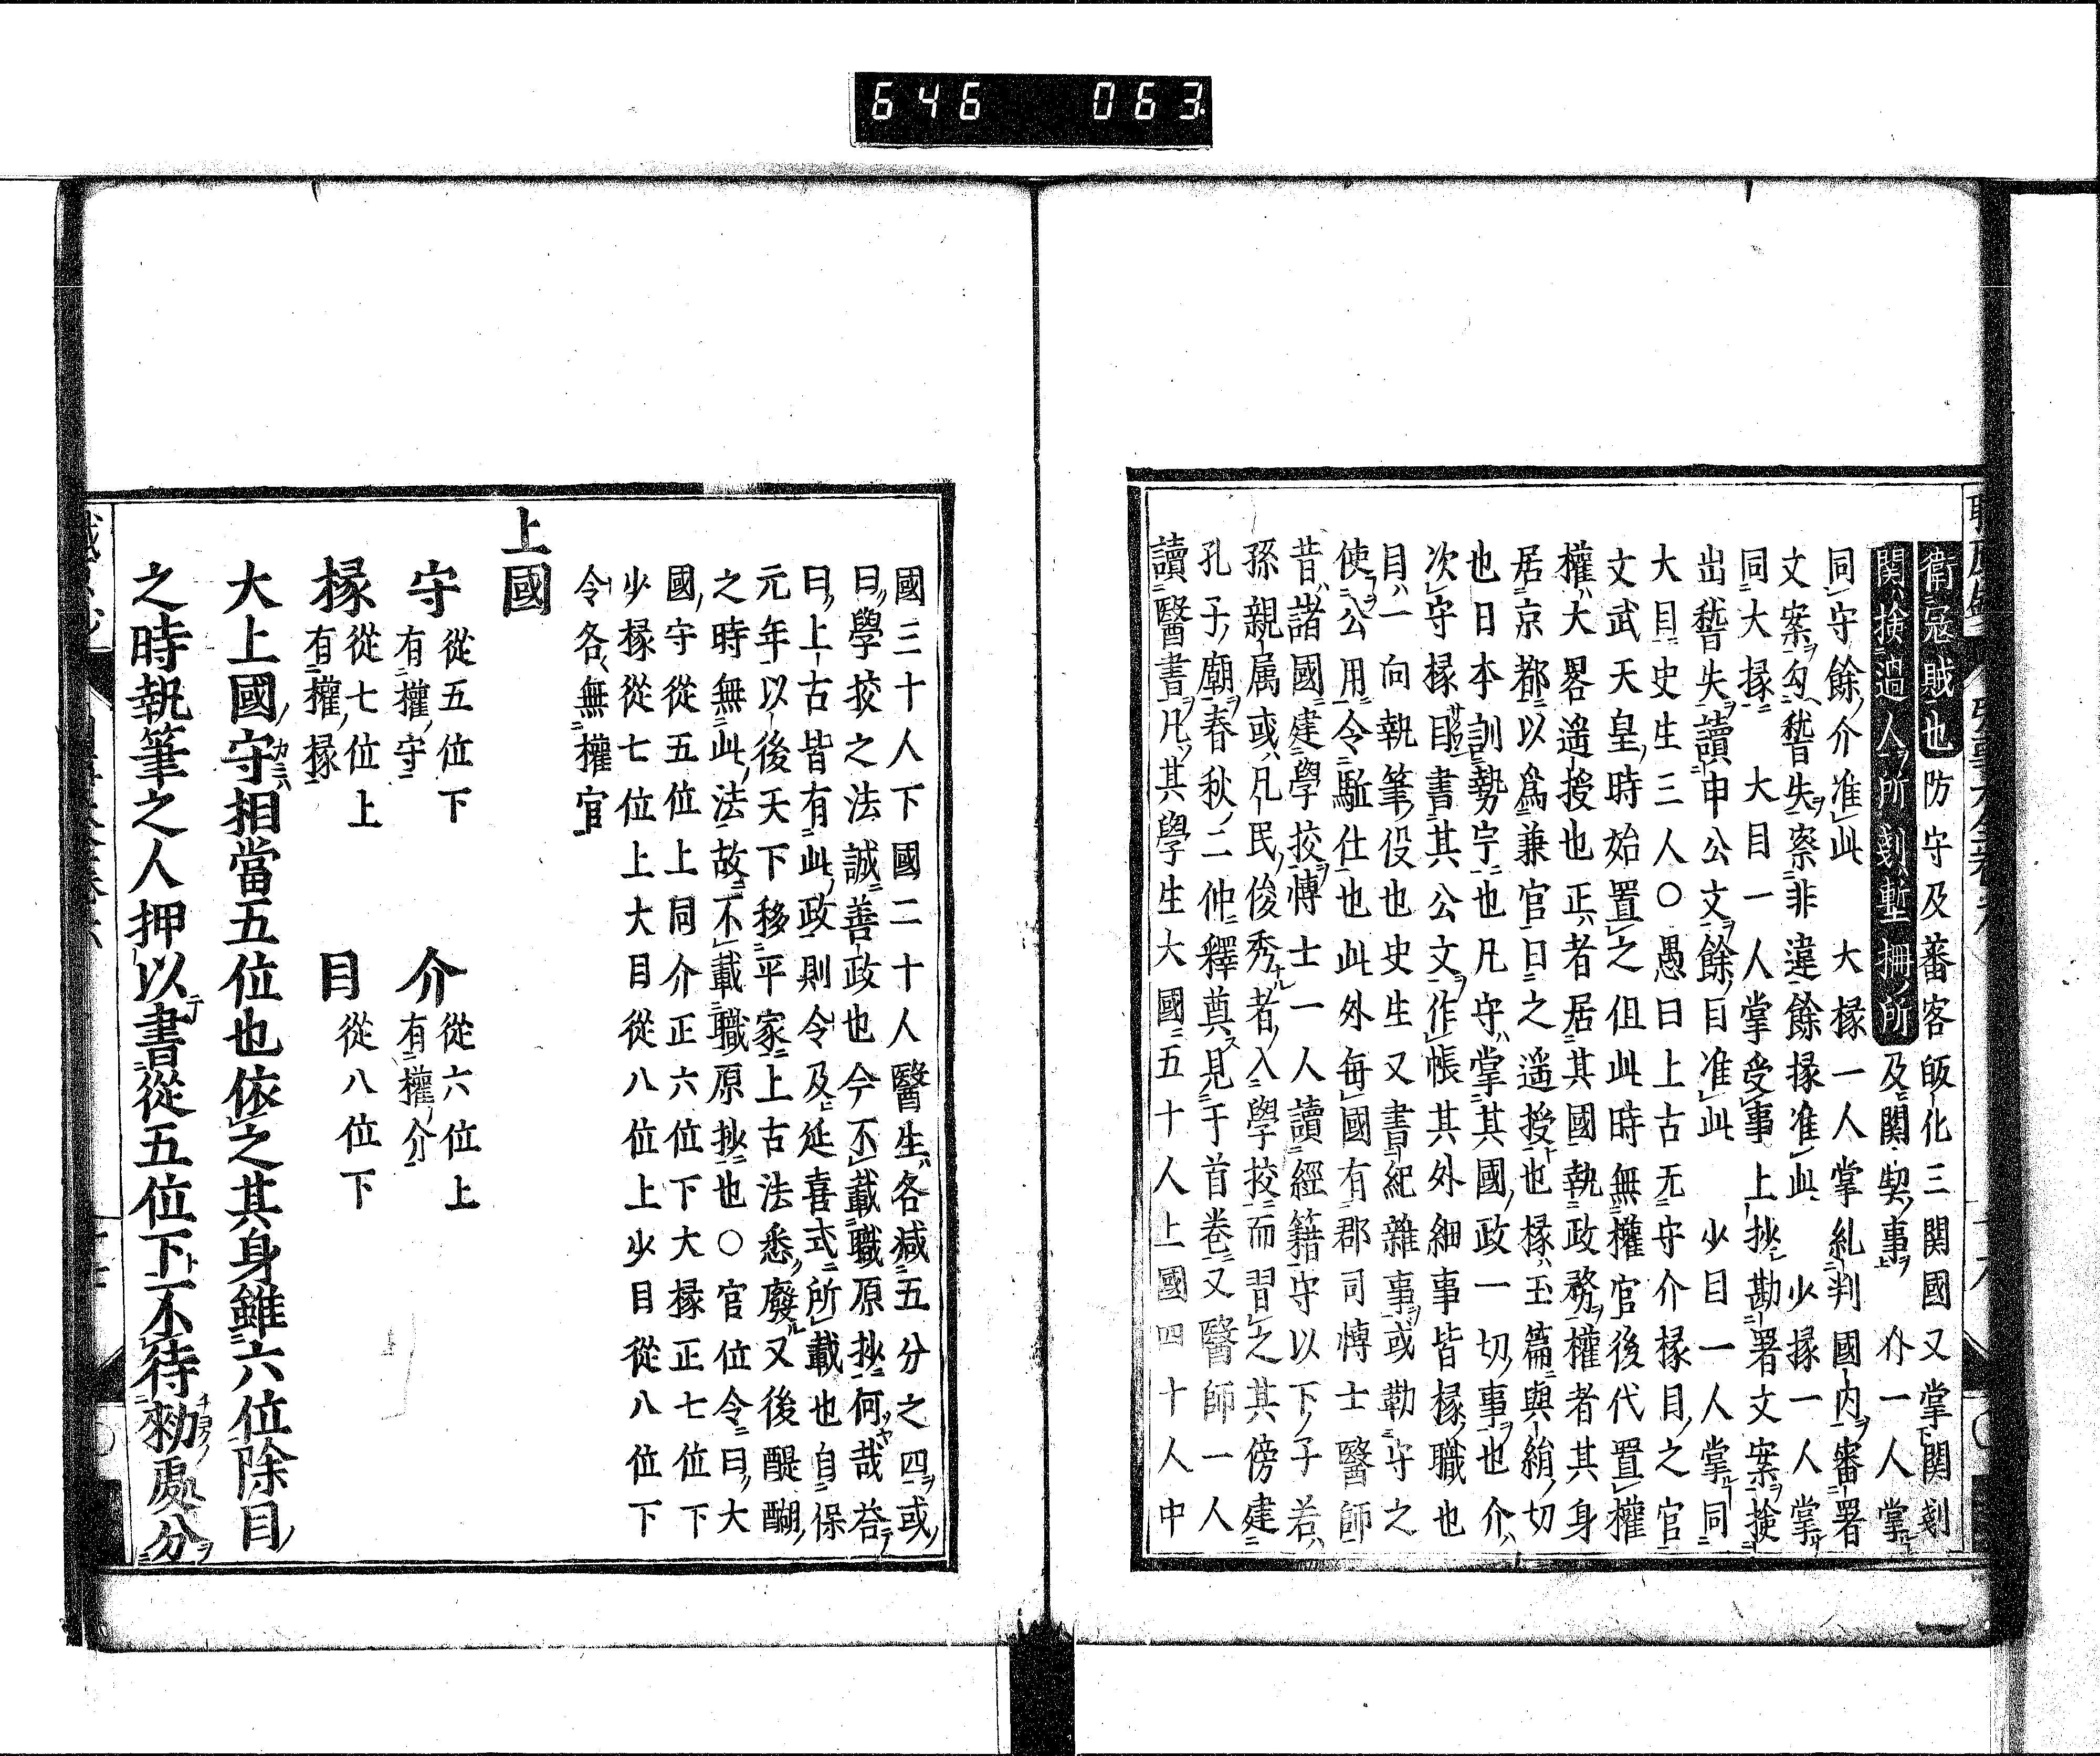 646 063
衛冦賊也防守及蕃客皈化三関國又掌関剗
関檢過人所剗塹柵所及関契事 介一人掌
同守餘介准此 大掾一人掌糺判國内審署
文案勾稽失察非違餘掾准此 少掾一人掌
同大掾 大目一人掌受事上抄勘署文案撿
出稽失讀申公文餘目准此 少目一人掌同
大目史生三人○愚曰上古无守介掾目之官
文武天皇時始置之但此時無權官後代置權
權大畧遥授也正者居其國執政務權者其身
居京都以爲兼官曰之遥授也掾玉篇與絹切
也日本訓勢宇也凡守掌其國政一切事也介
次守掾目書其公文作帳其外細事皆掾職也
目一向執筆役也史生又書紀雜事或勒守之
使公用令駈仕也此外毎國有郡司愽士醫師
昔諸國建學挍愽士一人讀經籍守以下子若
孫親属或凡民俊秀者入學挍而習之其傍建
孔子廟春秋二仲釋奠見于首卷又醫師一人
讀醫書凡其學生大國五十人上國四十人中
國三十人下國二十人醫生各減五分之四或
曰學挍之法誠善政也今不載職原抄何哉荅
曰上古皆有此政則令及延喜式所載也自保
元年以後天下移平家上古法悉廢又後醍醐
之時無此法故不載職原抄也○官位令曰大
國守從五位上同介正六位下大掾正七位下
少掾從七位上大目從八位上少目從八位下
令各無權官
上國
守 從五位下 有權守 介 從六位上 有權介
掾 從七位上 有權掾 目 從八位下
大上國守相當五位也依之其身雖六位除目
之時執筆之人押以書從五位下不待勑處分